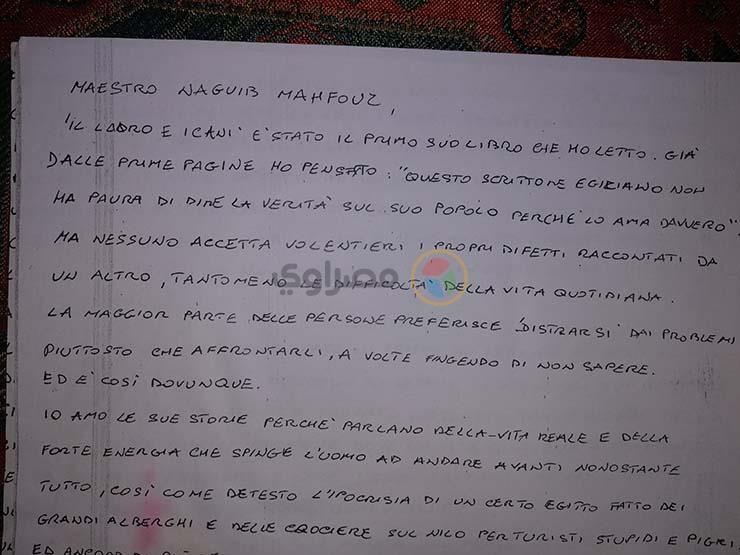 MAESTRO NAGUIB MAHFOUZ,
"IL LADRO E I CANI" È STATO IL PRIMO SUO LIBRO CHE HO LETTO. GIÀ
DALLE PRIME PAGINE HO PENSATO: "QUESTO SCRITTORE EGIZIANO NON
HA PAURA DI DIRE LA VERITÀ SUL SUO POPOLO PERCHÉ LO AMA DAVVERO".
MA NESSUNO ACCETTA VOLENTIERI I PROPRI DIFETTI RACCONTATI DA
UN ALTRO, TANTOMENO LE DIFFICOLTÀ DELLA VITA QUOTIDIANA.
مصراوي
LA MAGGIOR PARTE DELLE PERSONE PREFERISCE "DISTRARSI" DAI PROBLEMI
PIUTTOSTO CHE AFFRONTARLI, A VOLTE FINGENDO DI NON SAPERE.
ED È COSÌ DOVUNQUE.
IO AMO LE SUE STORIE PERCHÉ PARLANO DELLA VITA REALE E DELLA
FORTE ENERGIA CHE SPINGE L'UOMO AD ANDARE AVANTI NONOSTANTE
TUTTO, COSÌ COME DETESTO L'IPOCRISIA DI UN CERTO EGITTO FATTO DEI
GRANDI ALBERGHI E DELLE CROCIERE SUL NILO PER TURISTI STUPIDI E PIGRI.
ED ANCORA